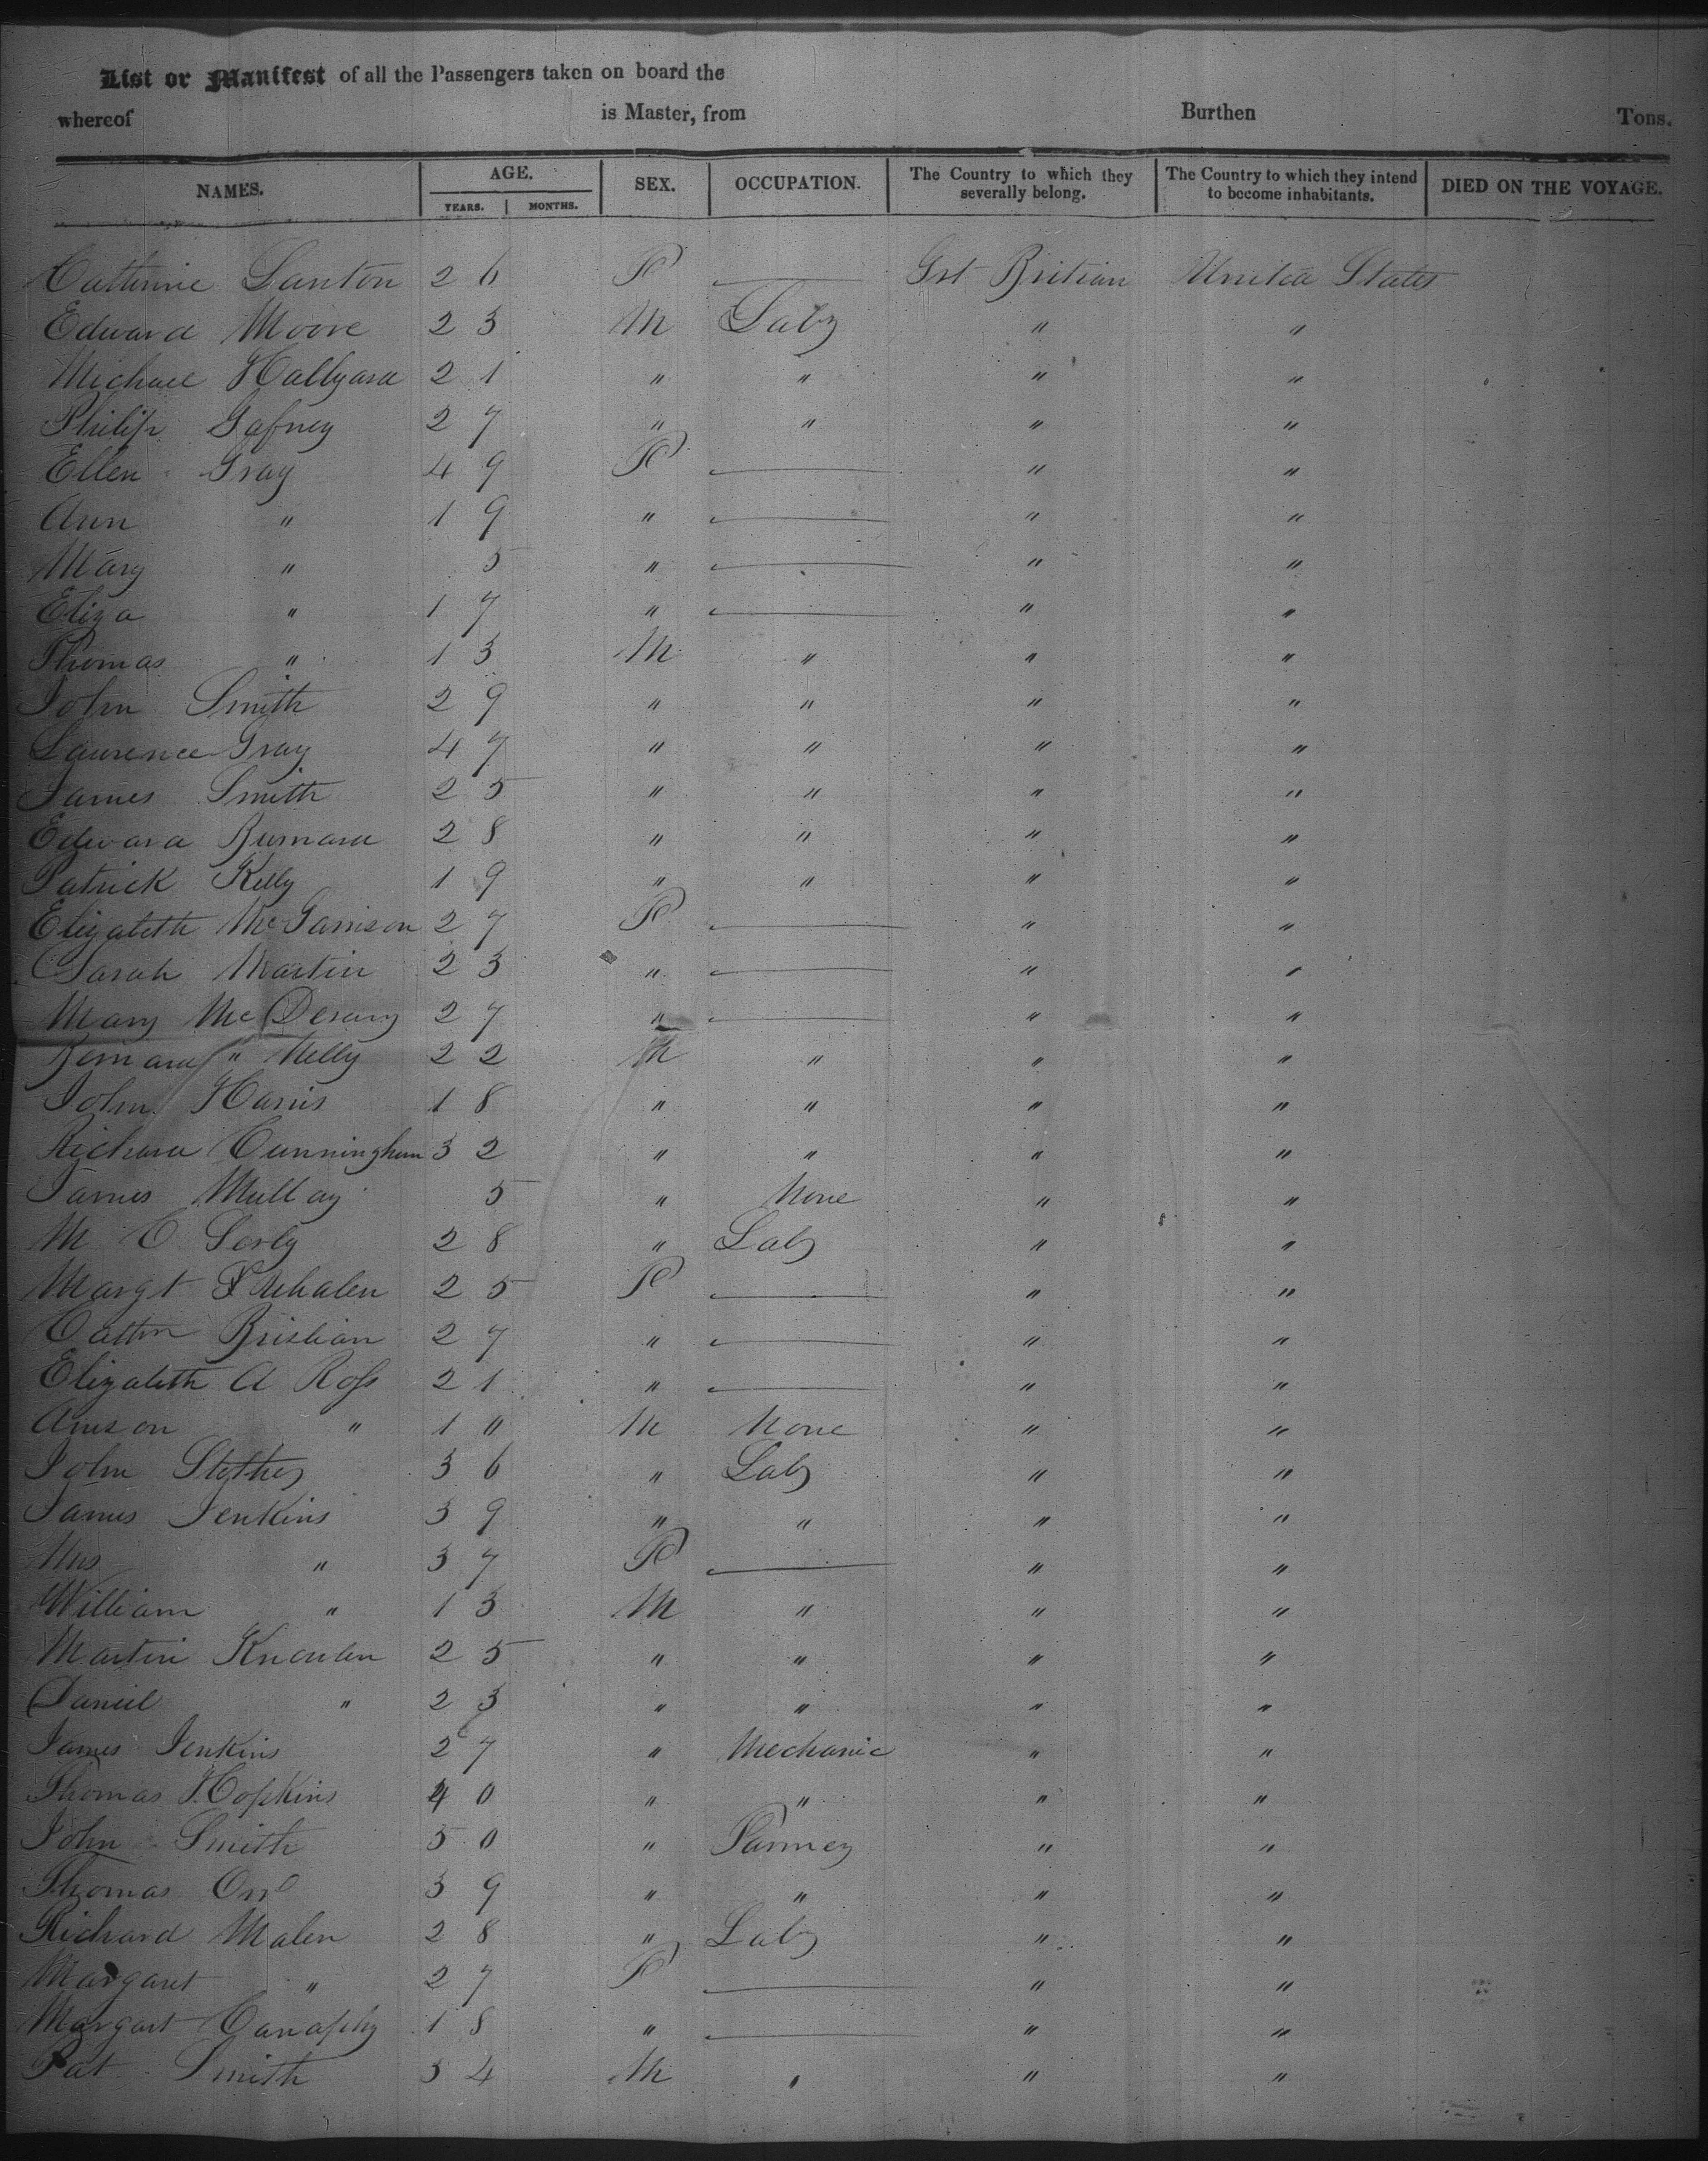 List or Manifest of all the Passengers taken on board the
whereof is Master, from Burthen Tons.
NAMES. AGE. YEARS. MONTHS. SEX. OCCUPATION. The Country to which they severally belong. The Country to which they intend to become inhabitants. DIED ON THE VOYAGE.
Catherine Lanton 26 F — Grt Britian United States
Edward Moore 23 M Labr " "
Michael Hallyard 21 " " " "
Philip Gafney 27 " " " "
Ellen Gray 49 F — " "
Ann " 19 " — " "
Mary " 5 " — " "
Eliza " 17 " — " "
Thomas " 13 M " " "
John Smith 29 " " " "
Laurence Gray 47 " " " "
James Smith 25 " " " "
Edward Burnard 28 " " " "
Patrick Kelly 19 " " " "
Elizabeth McGarrison 27 F — " "
Sarah Martin 23 " — " "
Mary McDerary 27 " — " "
Bernard " Nelly 22 M " " "
John Harris 18 " " " "
Richard Cunningham 32 " " " "
James Mullay 5 " None " "
M C Serly 28 " Labr " "
Margt Whalen 25 F — " "
Cathn Bristian 27 " — " "
Elizabeth A Ross 21 " — " "
" 1 " M None " "
John 36 " Labr " "
James Jenkins 39 " " " "
Mrs " 37 F — " "
William " 13 M " " "
Martin Knowlan 25 " " " "
Daniel " 23 " " " "
James Jenkins 27 " Mechanic " "
Thomas Hopkins 40 " " " "
John Smith 50 " Farmer " "
Thomas Orr 39 " " " "
Richard Malen 28 " Labr " "
Margaret " 27 F — " "
Margart Canaphy 18 " — " "
Pat Smith 34 M " " "